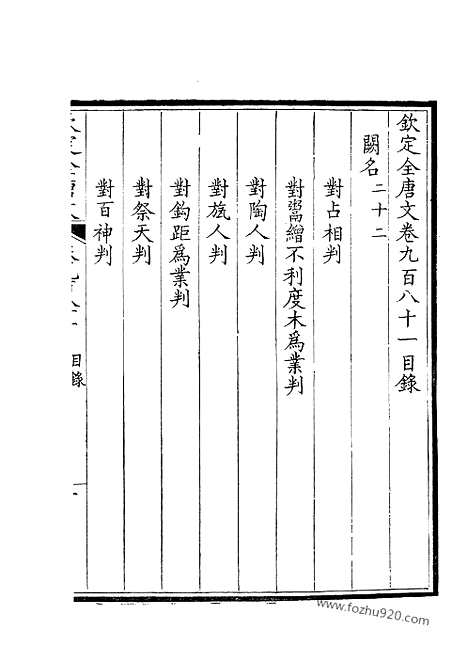 欽定全唐文卷九百八十一目錄
闕名二十二
對占相判
對鬻繒不利度木爲業判
對陶人判
對旊人判
對鈎距爲業判
對祭天判
對百神判
目錄
www.fozhu920.com